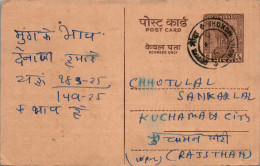 मुंग के भाव
देनाजी हमारे
यहां 183-25
149-25
+ भाव है
पोस्ट कार्ड
POST CARD
केवल पता
ADDRESS ONLY
CHHOTULAL
SANKARLAL
KUCHAMAN CITY
(RAJSTHAN)